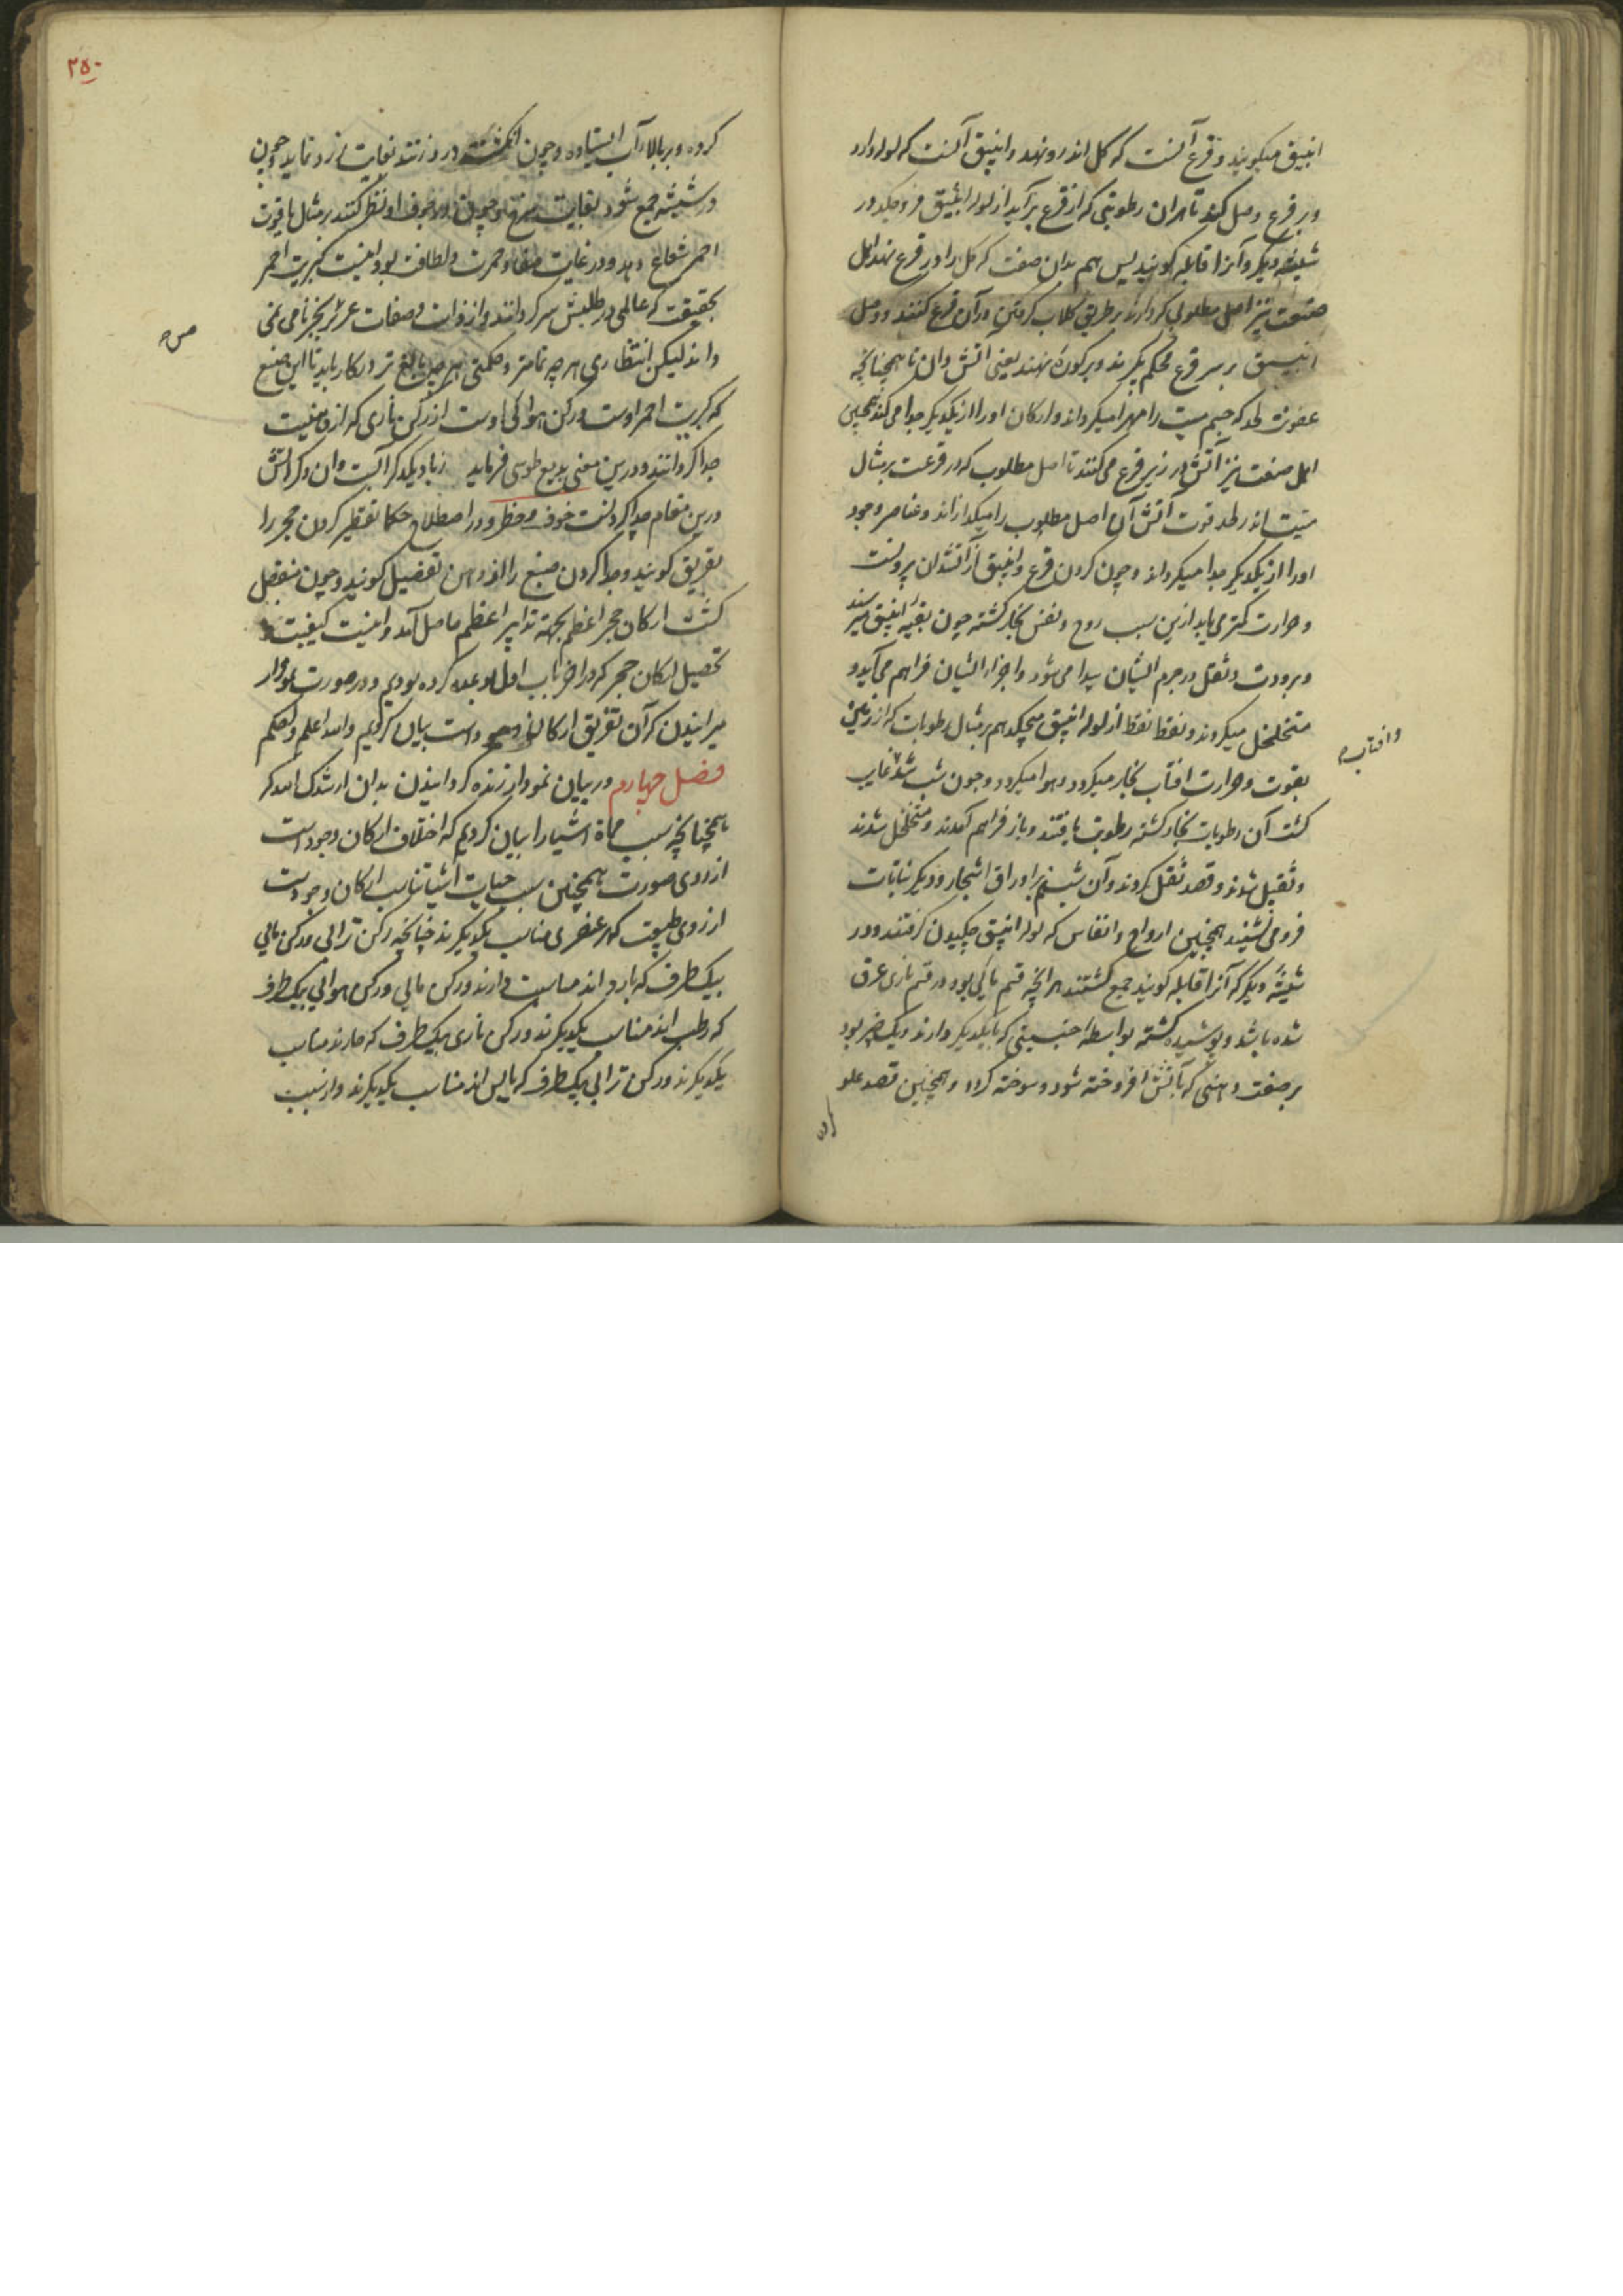 انبیق میکویند و قرع آنست که کل اندرو نهند و انبیق آنست که لوله دارد
و بر قرع وصل کنند تا هران رطوبتی که از قرع برآید از لوله انبیق فرو چکد در
شیشه دیکر و آنرا قابله کویند پس هم بدان صفت که کل را در قرع نهند اهل
صنعت نیز اصل مطلوبی که دارند بطریق کلاب کرفتن در آن قرع کنند و وصل
انبیق بر سر قرع محکم بکیرند و بر کوره نهند یعنی آتش دان تا همچنانچه
عفونت لحد که جسم میت را مهرا میکرداند و ارکان او را از یکدیکر جدا می کند همچنین
اهل صنعت نیز آتش در زیر قرع می کنند تا اصل مطلوب که در قرعست بر مثال
میت اندر لحد قوت آتش آن اصل مطلوب را میکدازاند و عناصر وجود
او را از یکدیکر جدا میکرداند و چون کردن قرع و انبیق از آتشدان برونست
و حرارت کمتر می یابد ازین سبب روح و نفس بخار کشته چون بقبه انبیق میرسند
و برودت و ثقل در جرم ایشان پیدا می شود و اجزاء ایشان فراهم می آید و
متخلخل میکردند و نقط نقط از لوله انبیق میچکد هم بر مثال رطوبات که از زمین
وافتاب
بقوت و حرارت افتاب بخار میکردد و هوا میکردد و چون شب شد غایب
کشت آن رطوبات بخار کشته رطوبت یافتند و باز فراهم آمدند و متخلخل شدند
و ثقیل شوند و قصد ثقل کردند و آن شبنم بر اوراق اشجار و دیکر نباتات
فرو می نشیند همچنین ارواح و انفاس که لوله انبیق چکیدن کرفتند و در
شیشه دیکر که آنرا قابله کویند جمع کشتند هر انچه قسم مائی بود در قسم ناری غرق
شده باشد و پوشیده کشته بواسطه جنسیتی که با یکدیکر دارند و یک بود
بر صفت دهنی که باتش افروخته شود و سوخته کردد و همچنین قصد علو
۲۵۰
کرده و بر بالاء آب ایستاده و چون انکشت در و زنند بغایت زرد نماید چون
در شیشه جمع شود بغایت سرخ و چون در جوف او نظر کنند بر مثال یاقوت
احمر شعاع دهد و در غایت صفا و حمرت و لطافت بود اینست کبریت احمر
بحقیقت که عالمی در طلبش سر کردانند و از ذات و صفات عزیز بجز نامی نمی
دانند لیکن انتظاری هر چه تمامتر و حکمتی هر چه بالغ تر در کار باید تا این صنع
که کبریت احمر اوست و رکن هوائی اوست از رکن ناری که از
جدا کردانند و درین معنی بدیع طوسی فرماید
درین مقام جدا کردنست خوف و خطر و در اصطلاح حکما تقطیر کردن حجر را
تفریق کویند و جدا کردن صبغ را از دهن تفصیل کویند و چون منفصل
کشت ارکان حجر اعظم بجهة تدابیر اعظم حاصل آمد و اینست کیفیت
تحصیل ارکان حجر که در اخر باب اول وعده کرده بودیم و در صورت نمودار
میرانیدن که آن تفریق ارکان است بیان کردیم والله اعلم و احکم
فصل چهارم در بیان نمودار زنده کردانیدن بدان ارشدک الله که
همچنانچه سبب مماة اشیا را بیان کردیم که اختلاف ارکان وجودست
از روی صورت همچنین سبب حیات اشیا تناسب ارکان وجودست
از روی طبیعت که هر عنصری مناسب یکدیکرند چنانچه رکن ترابی و رکن مائی
بیک طرف که بارد اند مناسبت دارند و رکن مائی و رکن هوائی بیک طرف
که رطب اند مناسب یکدیکرند و رکن ناری بیک طرف که حارند مناسب
یکدیکرند و رکن ترابی بیک طرف که یابس اند مناسب یکدیکرند و از سبب